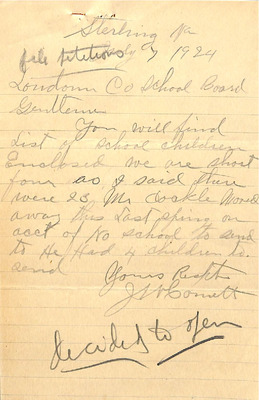 Sterling Va
file petitions July 7 1924
Loudoun Co School Board
Gentlemen
You will find
List of School children
Enclosed we are short
four as I said there
were 23 Mr Cockle Moved
away this Last spring on
acct of No school to send
to He Had 4 children to
send
Yours Respt
decided to open